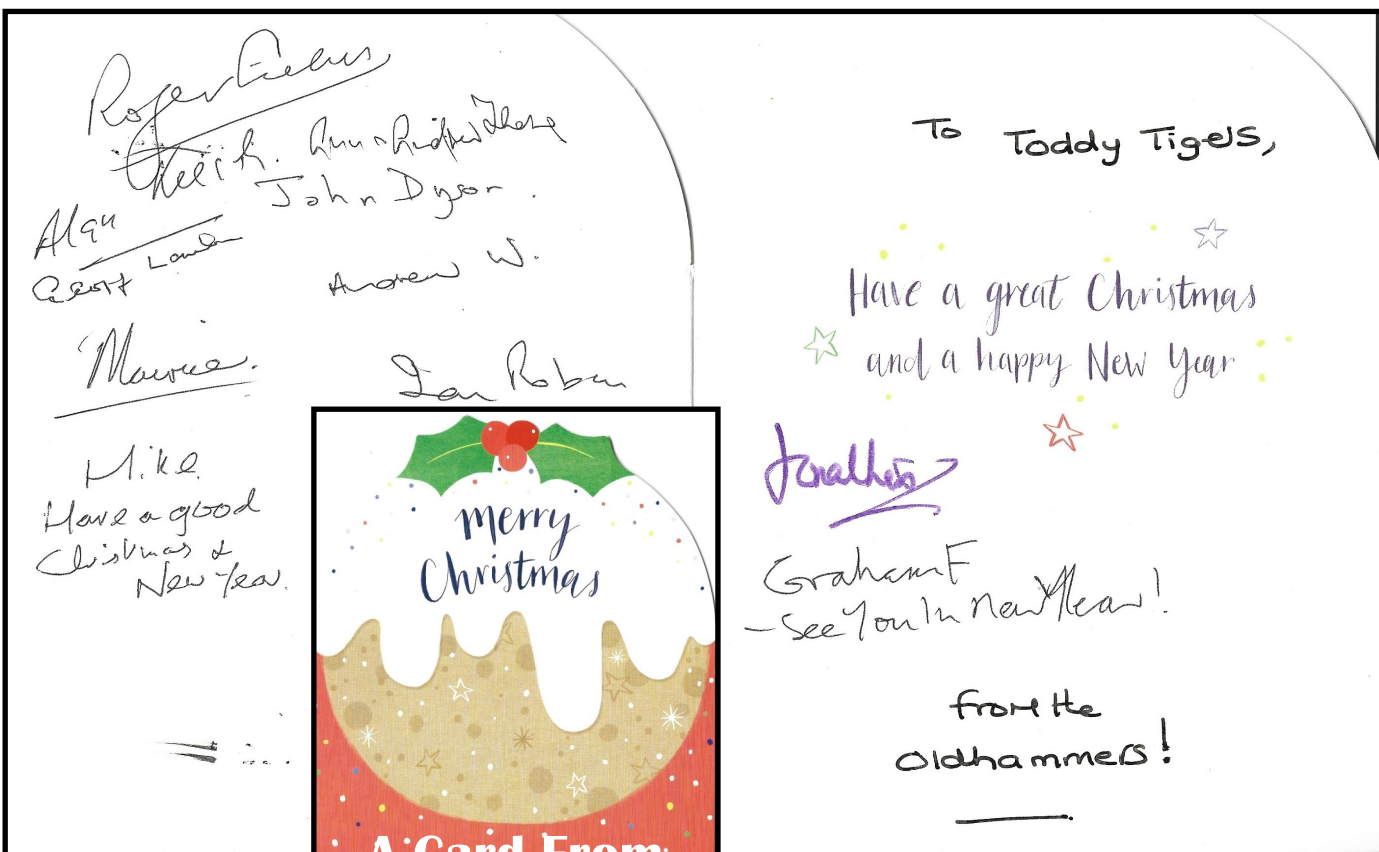 Roger
Keith. Ann
John Dyson.
Alan
Geoff
Andrew W.
Maurice.
Ian
Mike.
Have a good
Christmas &
New Year.
merry
Christmas
A Card From
To Toddy Tigers,
Have a great Christmas
and a happy New Year
Jonathan
Graham F
- See You In New Year!
from the
Oldhammers!